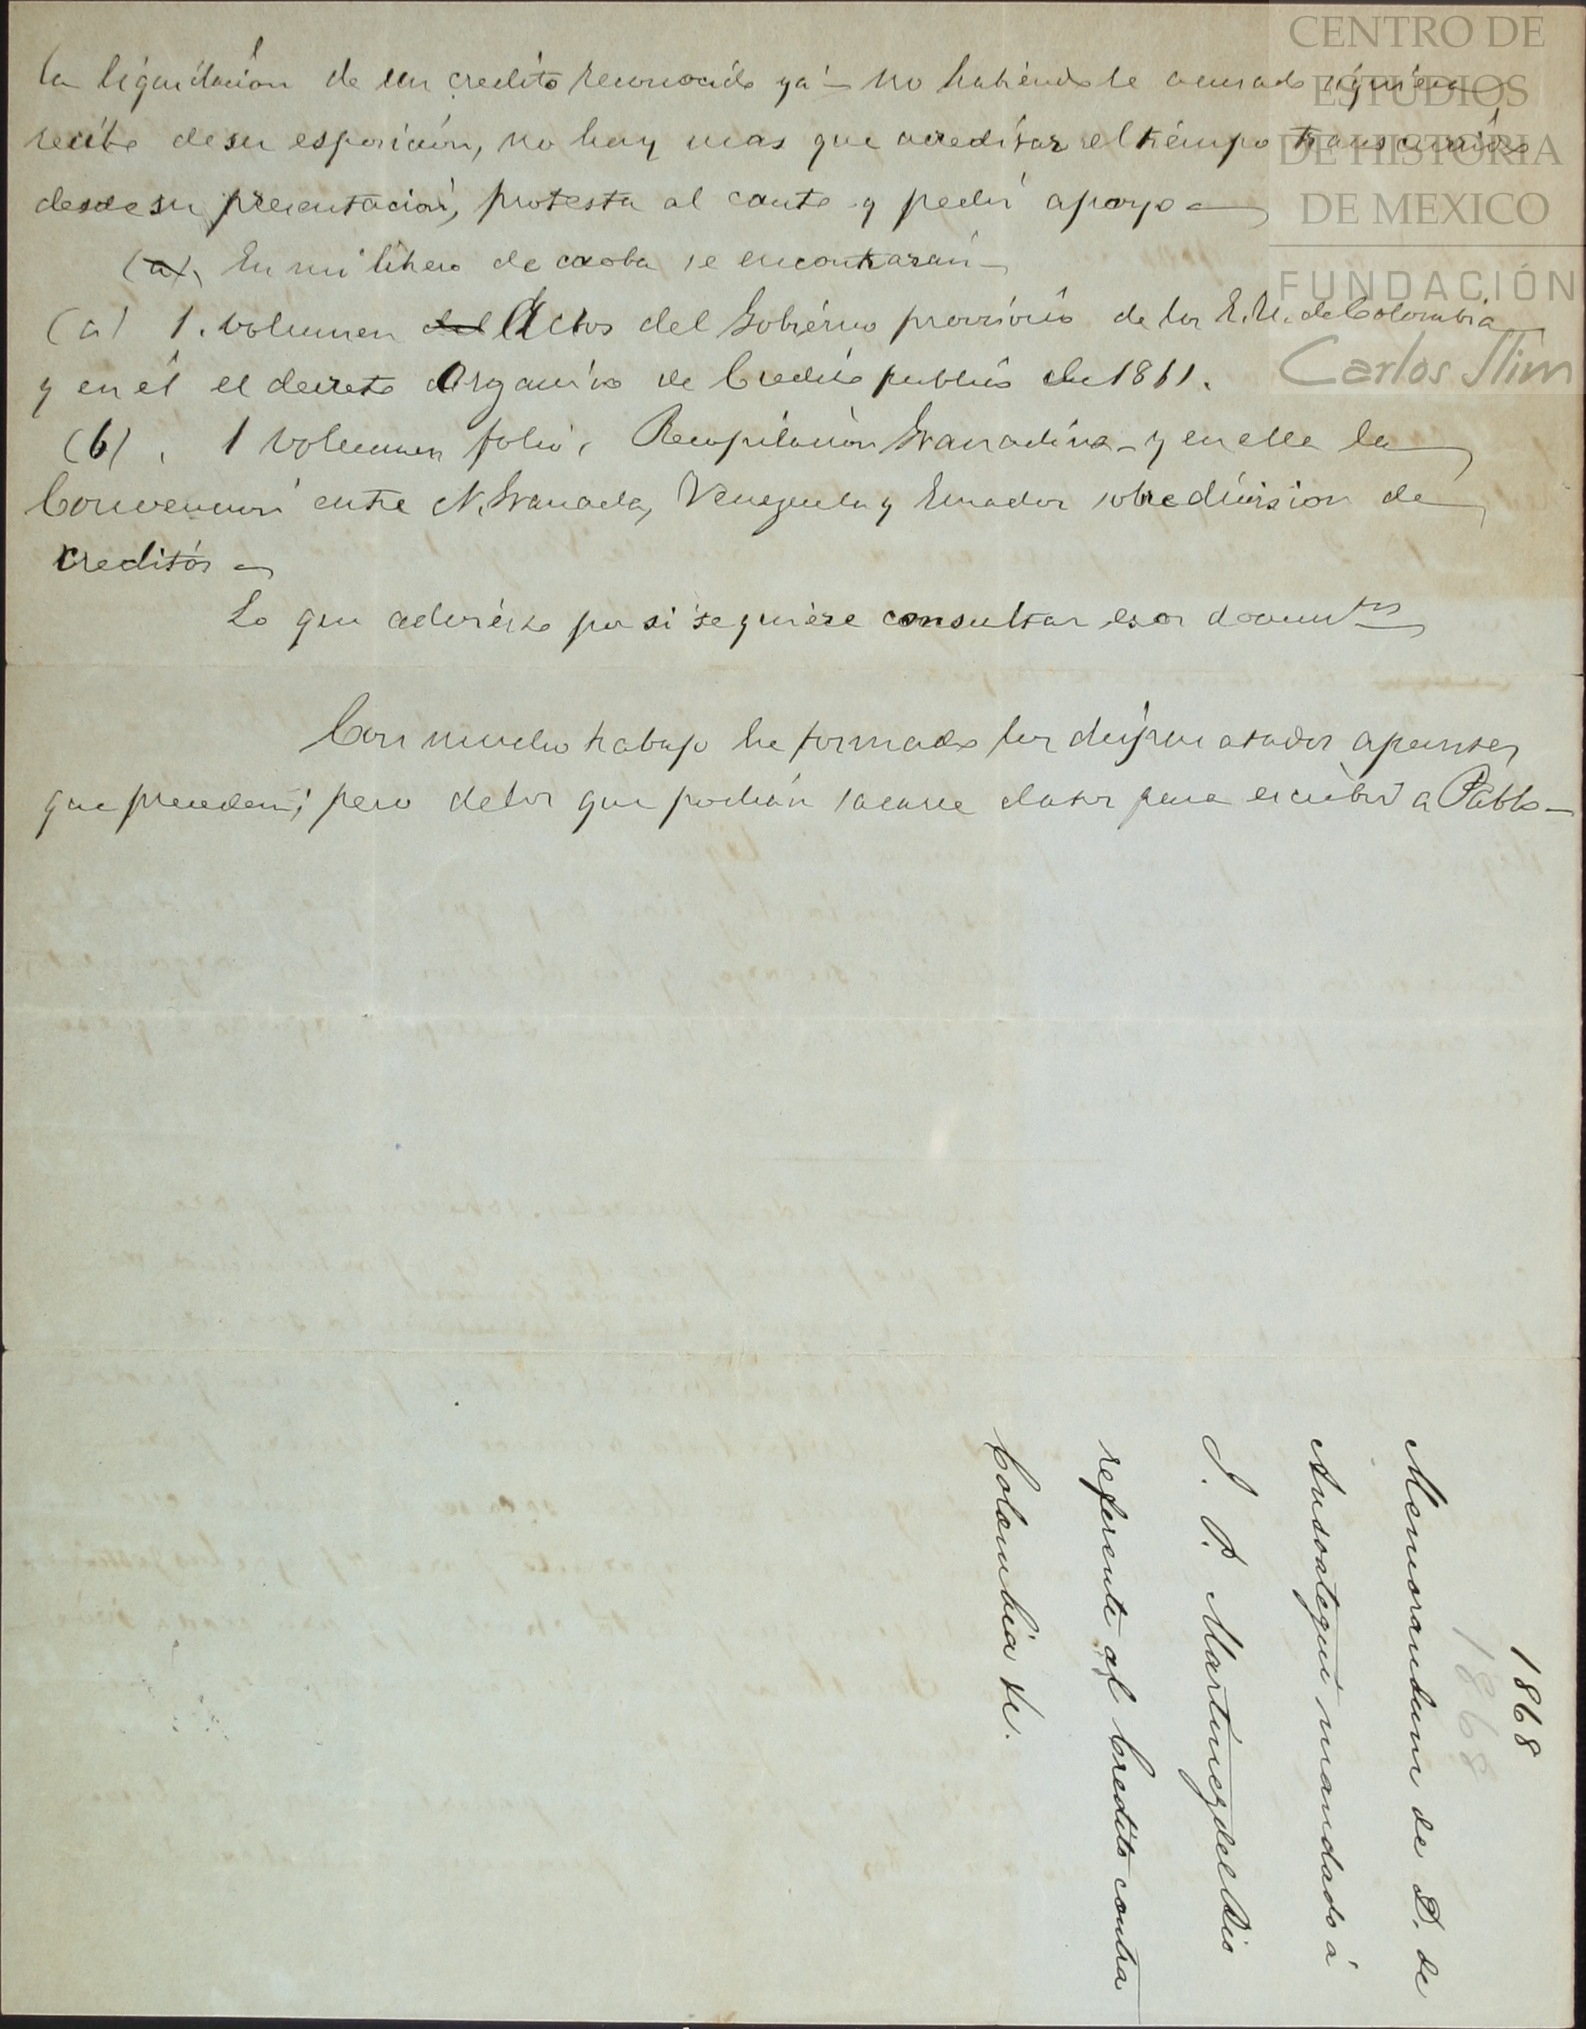 la liquidacion de un credito reconocido ya — no habiendole acusado siquiera
recibo de su esposicion, no hay mas que acreditar el tiempo transcurrido
desde su presentacion, protesta al canto y pedir apoyo —
(a). En mi librero de caoba se encontraran —
(a) 1. volumen del Actos del Gobierno provisorio de los E. U. de Colombia
y en él el decreto organico de Credito publico de 1861.
(b). 1 volumen folio, Recopilacion Granadina — y en ella la
Convencion entre N. Granada, Venezuela y Ecuador sobre division de
creditos —
Lo que advierto por si se quiere consultar esos documtos
Con mucho trabajo he formado los apuntes
que preceden; pero de los que podrán sacarse datos para escribir a Pablo —
1868
1868
Memorandum de D. de
Ansoategui mandado á
J. P. Martinez del Rio
referente al Credito contra
Colombia &c.
CENTRO DE
ESTUDIOS
DE HISTORIA
DE MEXICO
FUNDACIÓN
Carlos Slim